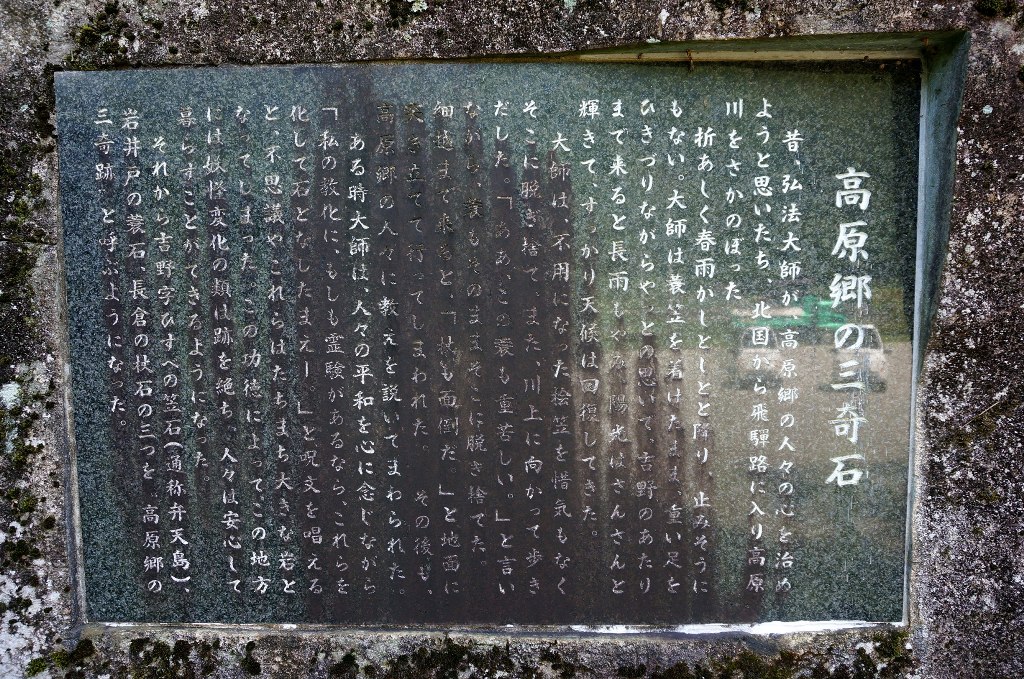 高原郷の三奇石
昔、弘法大師が、高原郷の人々の心を治め
ようと思いたち、北国から飛騨路に入り高原
川をさかのぼった。
折あしく春雨がしとしとと降り、止みそうに
もない。大師は蓑笠を着けたまま、重い足を
ひきづりながらやっとの思いで、吉野のあたり
まで来ると長雨もやみ、陽光はさんさんと
輝きて、すっかり天候は回復してきた。
大師は、不用になった桧笠を惜気もなく
そこに脱ぎ捨て、また、川上に向かって歩き
だした。「ああ、この蓑も重苦しい。」と言い
ながら、蓑もそのままそこに脱ぎ捨てた。
細越まで来ると、「杖も面倒だ。」と地面に
突き立てて行ってしまわれた。その後も、
高原郷の人々に教えを説いてまわられた。
ある時大師は、人々の平和を心に念じながら
「私の教化に、もしも霊験があるなら、これらを
化して石となしたまえー。」と呪文を唱える
と、不思議やこれらはたちまち大きな岩と
なってしまった。この功徳によって、この地方
には妖怪変化の類は跡を絶ち、人々は安心して
暮らすことができるようになった。
それから吉野字ひすへの笠石(通称弁天島)、
岩井戸の蓑石、長倉の杖石の三つを〝高原郷の
三奇跡〟と呼ぶようになった。